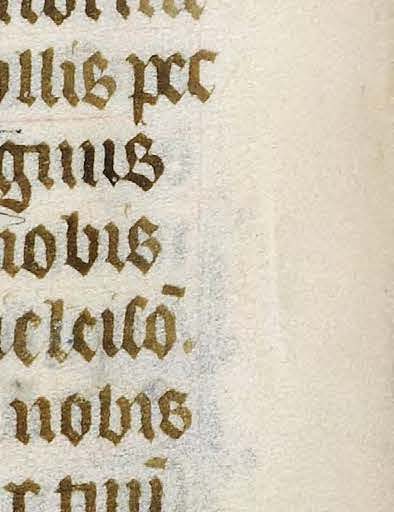 ollis pec
gnus
nobis
ieleisō.
nobis